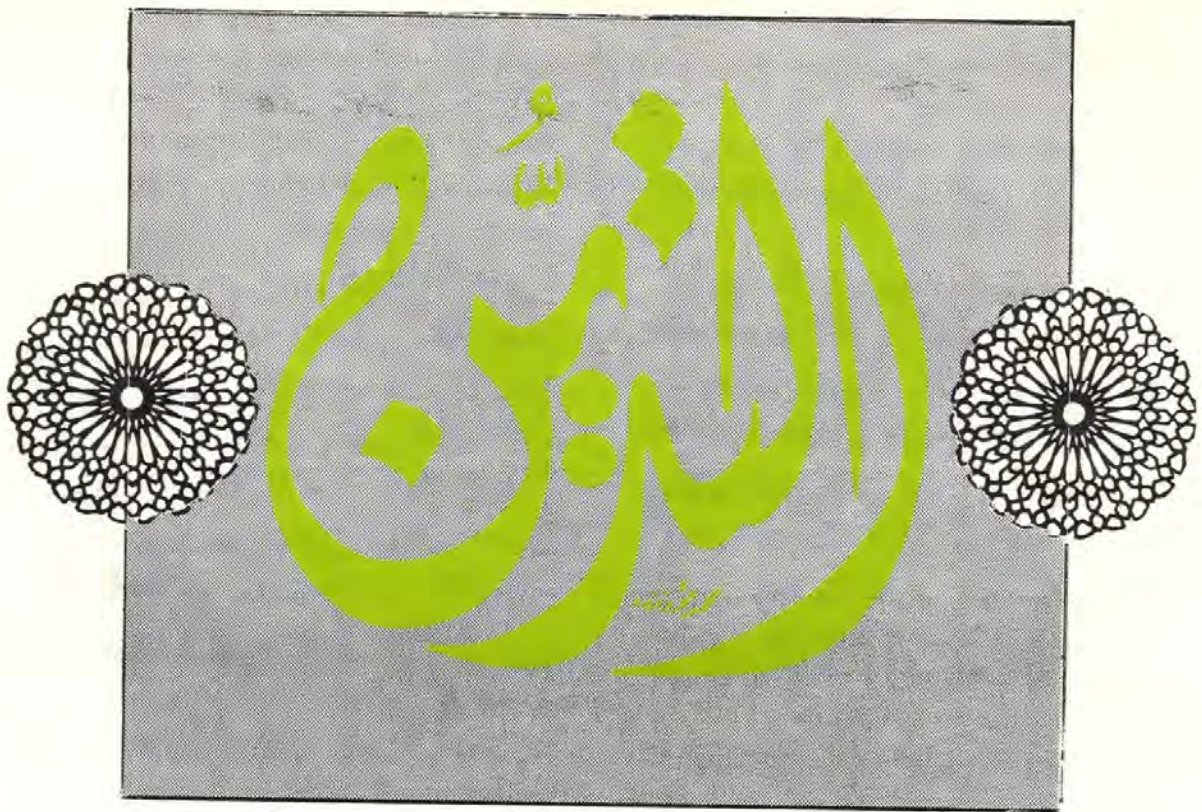 التديُّن